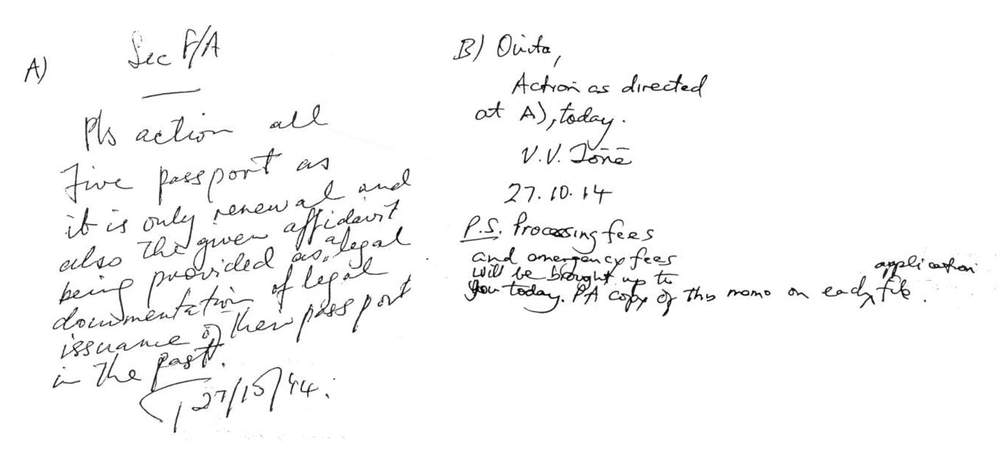 A)
Sec F/A
Pls action all
Five passport as
it is only renewal and
also the given affidavit
being provided as a legal
documentation of legal
issuance of their passport
in the past.
B) Ovita,
Action as directed
at A), today.
27.10.14
P.S. Processing fees
and emergency fees
will be brought up to
you today. PA copy of this memo on each application file.